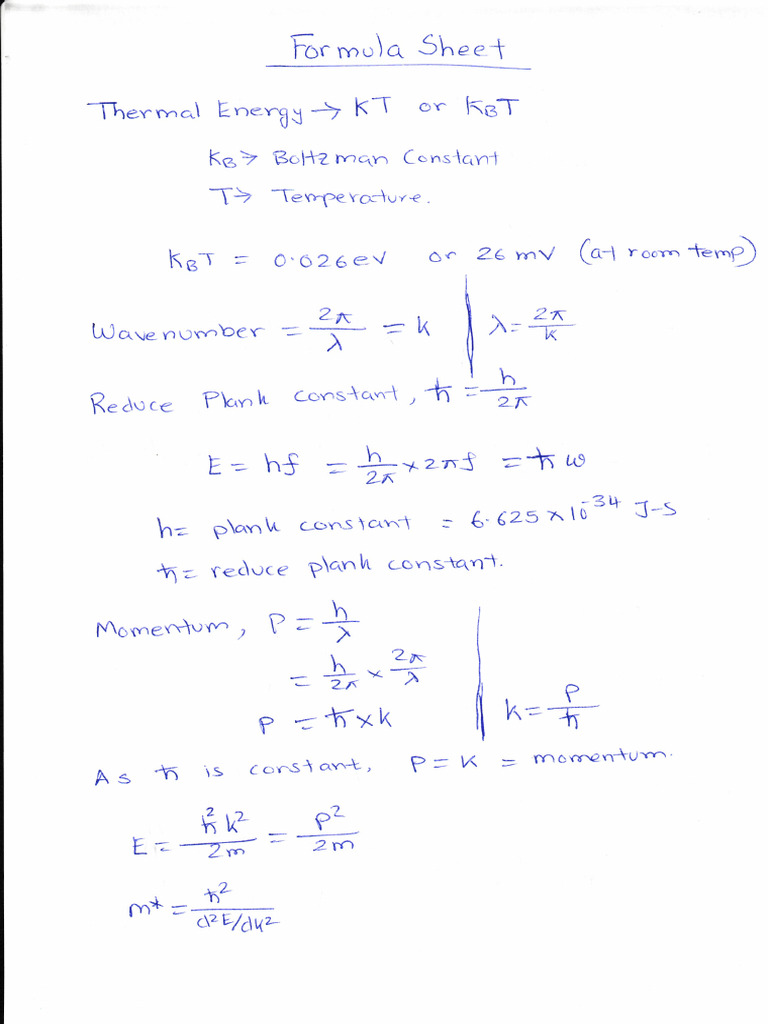 Formula Sheet
Thermal Energy → KT or KBT
KB → Boltzman Constant
T → Temperature.
KBT = 0.026eV or 26mV (at room temp)
Wavenumber = 2π/λ = k | λ = 2π/k
Reduce Plank constant, ħ = h/2π
E = hf = h/2π × 2πf = ħω
h = plank constant = 6.625 × 10^-34 J-S
ħ = reduce plank constant.
Momentum, P = h/λ
= h/2π × 2π/λ
P = ħ × k | k = P/ħ
As ħ is constant, P = K = momentum.
E = ħ²k²/2m = P²/2m
m* = ħ²/d²E/dk²